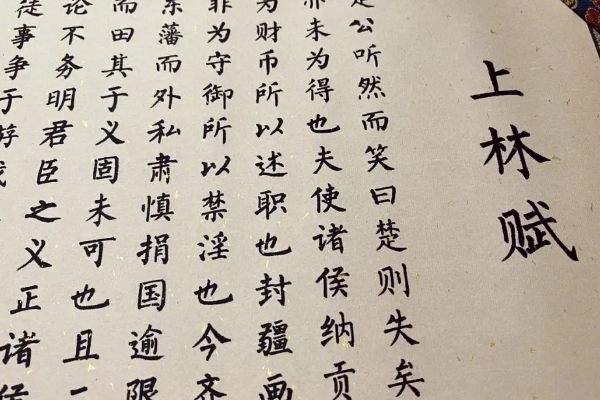 上林赋
是公听然而笑曰楚则失矣
亦未为得也夫使诸侯纳贡
为财币所以述职也封疆画
非为守御所以禁淫也今齐
东藩而外私肃慎捐国逾限
而田其于义固未可也且
论不务明君臣之义正诸侯
徒事争于游戏